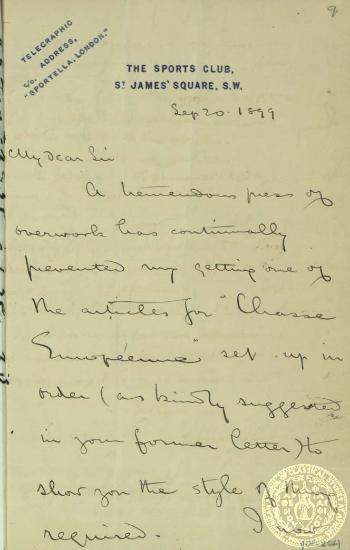 9
TELEGRAPHIC
c/o. ADDRESS,
"SPORTELLA, LONDON."
THE SPORTS CLUB,
ST JAMES' SQUARE, S.W.
Sep 20. 1899
My Dear Sir
A tremendous press of
overwork has continually
prevented my getting one of
the articles for "Chasse
Européenne" set up in
order (as kindly suggested
in your former letter) to
show you the style of thing
required. I now